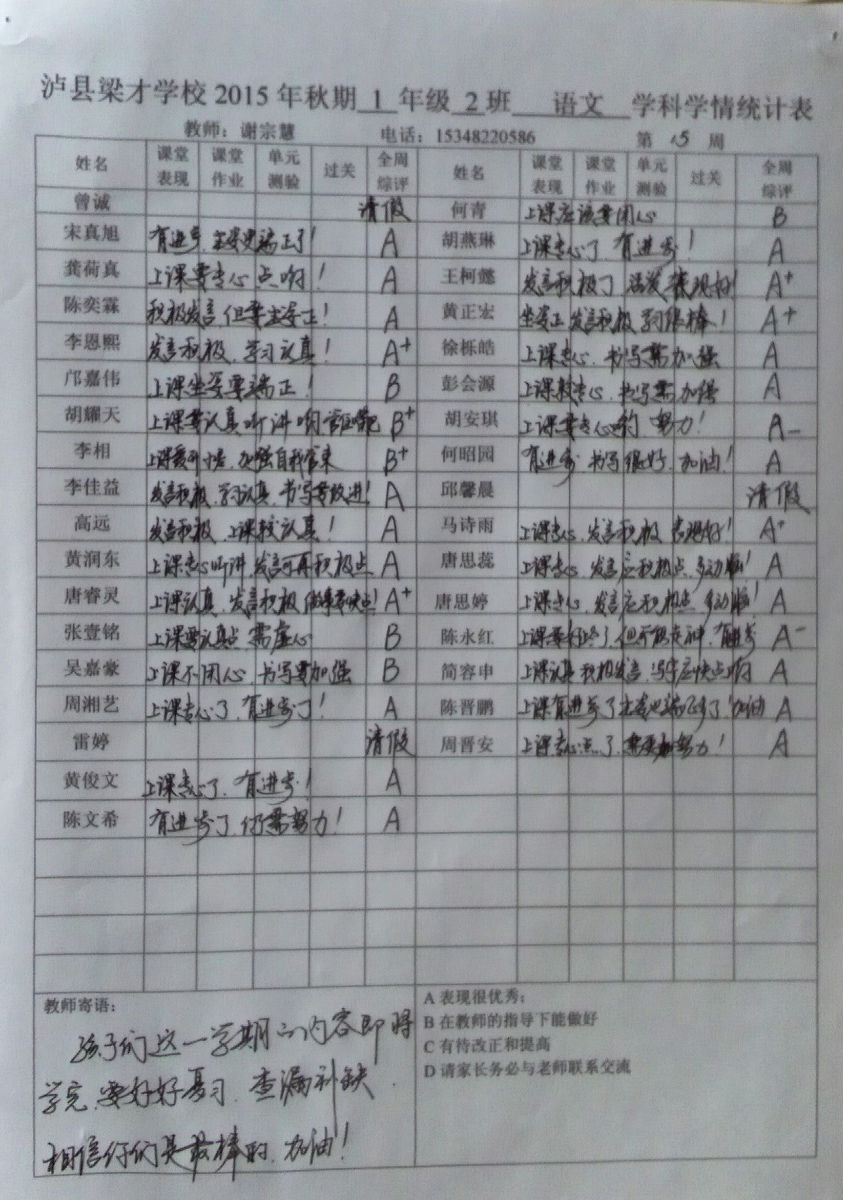 泸县梁才学校 2015 年秋期 1 年级 2 班 语文 学科学情统计表
教师：谢宗慧 电话：15348220586 第 15 周
姓名 课堂表现 课堂作业 单元测验 过关 全周综评 姓名 课堂表现 课堂作业 单元测验 过关 全周综评
曾诚 请假 何青 上课应该要用心 B
宋真旭 有进步 端正了！ A 胡燕琳 上课专心了，有进步！ A
龚荷真 上课要专心点啊！ A 王柯懿 发言积极了 活发 表现好！ A+
陈奕霖 积极发言，但要坐端正！ A 黄正宏 坐姿正，发言积极，学习很棒！ A+
李恩熙 发言积极，学习认真！ A+ 徐栎皓 上课专心，书写需加强 A
邝嘉伟 上课坐姿要端正！ B 彭会源 上课较专心，书写需加强 A
胡耀天 上课要认真听讲哟 B+ 胡安琪 上课要专心哟，努力！ A-
李相 加强自我管束 B+ 何昭园 有进步，书写很好，加油！ A
李佳益 发言积极，学习认真，书写要改进！ A 邱馨晨 请假
高远 发言积极，上课较认真！ A 马诗雨 上课专心，发言积极，表现好！ A+
黄润东 上课专心听讲，发言可再积极点 A 唐思蕊 上课专心，发言应积极点，多动脑！ A
唐睿灵 上课认真，发言积极，做事要快点！ A+ 唐思婷 上课专心，发言应积极点，多动脑！ A
张壹铭 上课要认真点，需虚心 B 陈永红 上课要好些了，但不能走神，有进步 A-
吴嘉豪 上课不用心，书写要加强 B 简容申 上课认真，积极发言，写字应快点啊 A
周湘艺 上课专心了，有进步了！ A 陈晋鹏 上课有进步了，坐姿也端正多了，加油 A
雷婷 请假 周晋安 上课专心点了，需更加努力！ A
黄俊文 上课专心了，有进步！ A
陈文希 有进步了，仍需努力！ A
教师寄语：
孩子们这一学期的内容即将
学完，要好好复习，查漏补缺，
相信你们是最棒的，加油！
A 表现很优秀；
B 在教师的指导下能做好
C 有待改正和提高
D 请家长务必与老师联系交流